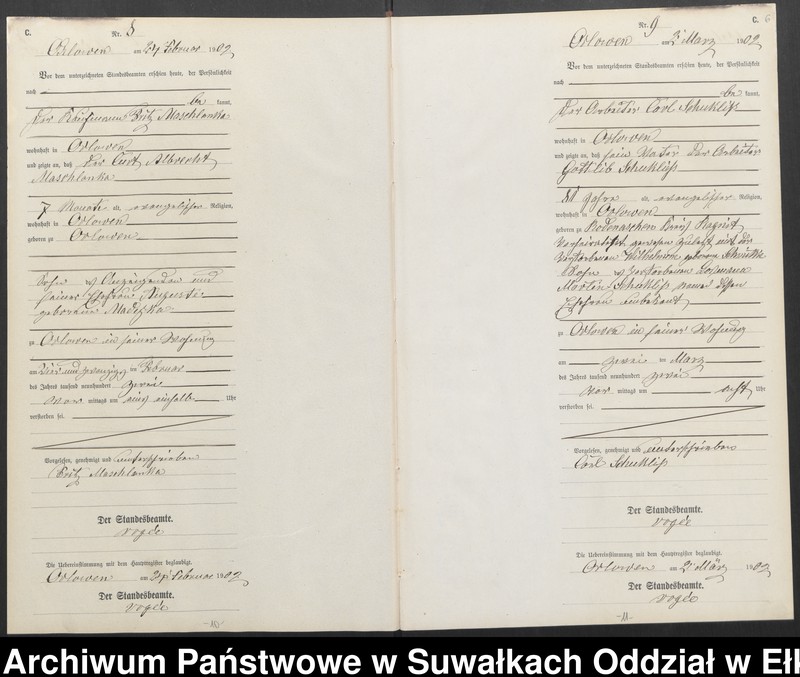 C.
Nr. 8
Orlowen am 24 Februar 1902
Vor dem unterzeichneten Standesbeamten erschien heute, der Persönlichkeit
nach
be kannt,
der Kaufmann Fritz Maschlanka
wohnhaft in Orlowen
und zeigte an, daß der Curt Albrecht
Maschlanka
7 Monate alt, evangelischer Religion,
wohnhaft in Orlowen
geboren zu Orlowen
Sohn des Anzeigenden und
seiner Ehefrau Auguste
geborene
zu Orlowen in seiner Wohnung
am vier und zwanzig ten Februar
des Jahres tausend neunhundert zwei
vor mittags um ein einhalb Uhr
verstorben sei.
Vorgelesen, genehmigt und unterschrieben
Fritz Maschlanka
Der Standesbeamte.
Vogée
Die Uebereinstimmung mit dem Hauptregister beglaubigt.
Orlowen am 24 Februar 1902
Der Standesbeamte.
Vogée
-10-
C. 6
Nr. 9
Orlowen am 2 März 1902
Vor dem unterzeichneten Standesbeamten erschien heute, der Persönlichkeit
nach
be kannt,
der Arbeiter Carl Schukließ
wohnhaft in Orlowen
und zeigte an, daß sein Vater der Arbeiter
Gottlieb Schukließ
Jahre alt, evangelischer Religion,
wohnhaft in Orlowen
geboren zu Kreis Ragnit
verheirathet gewesen zuletzt mit der
verstorbenen Wilhelmine geborene
Sohn des verstorbenen
Martin Schukließ und dessen
Ehefrau unbekannt
zu Orlowen in seiner Wohnung
am zwei ten März
des Jahres tausend neunhundert zwei
vor mittags um acht Uhr
verstorben sei.
Vorgelesen, genehmigt und unterschrieben
Carl Schukließ
Der Standesbeamte.
Vogée
Die Uebereinstimmung mit dem Hauptregister beglaubigt.
Orlowen am 2 März 1902
Der Standesbeamte.
Vogée
-11-
Archiwum Państwowe w Suwałkach Oddział w Eł